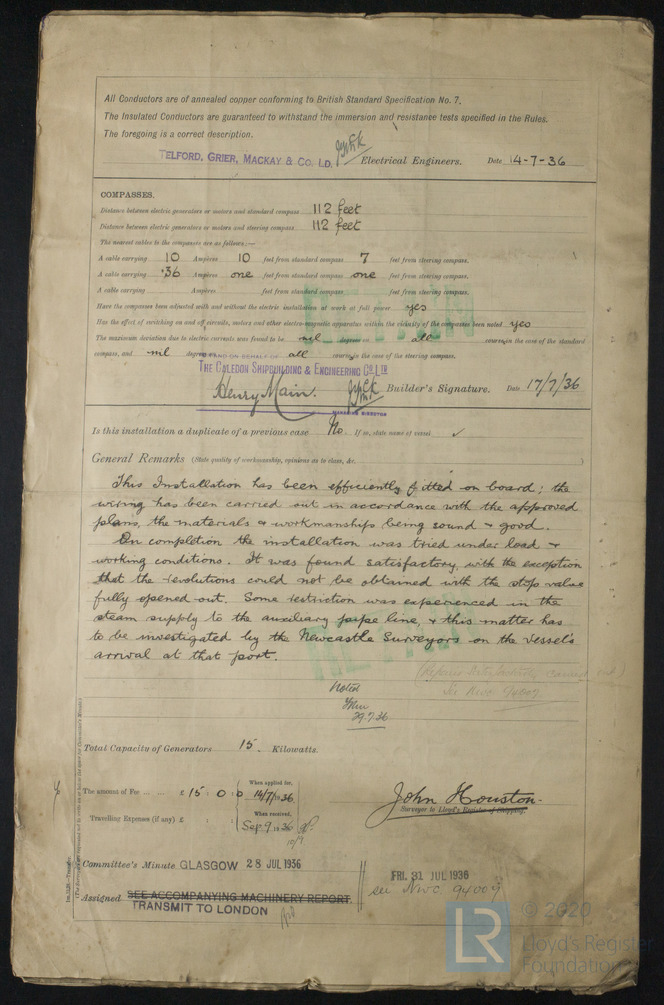 All Conductors are of annealed copper conforming to British Standard Specification No. 7.
The Insulated Conductors are guaranteed to withstand the immersion and resistance tests specified in the Rules.
The foregoing is a correct description.
TELFORD, GRIER, MACKAY & CO. LD. Electrical Engineers. Date 14-7-36
COMPASSES.
Distance between electric generators or motors and standard compass 112 feet
Distance between electric generators or motors and steering compass 112 feet
The nearest cables to the compasses are as follows:—
A cable carrying 10 Ampères 10 feet from standard compass 7 feet from steering compass.
A cable carrying .36 Ampères one feet from standard compass one feet from steering compass.
A cable carrying Ampères feet from standard compass feet from steering compass.
Have the compasses been adjusted with and without the electric installation at work at full power yes
Has the effect of switching on and off circuits, motors and other electro-magnetic apparatus within the vicinity of the compasses been noted yes
The maximum deviation due to electric currents was found to be nil degrees on all courses in the case of the standard
compass, and nil degrees on all courses in the case of the steering compass.
FOR AND ON BEHALF OF
THE CALEDON SHIPBUILDING & ENGINEERING CO. LTD
Henry Main. Builder's Signature. Date 17/7/36
MANAGING DIRECTOR
Is this installation a duplicate of a previous case No. If so, state name of vessel ✓
General Remarks (State quality of workmanship, opinions as to class, &c.)
This Installation has been efficiently fitted on board; the
wiring has been carried out in accordance with the approved
plans, the materials & workmanships being sound & good.
On completion the installation was tried under load &
working conditions. It was found satisfactory, with the exception
that the revolutions could not be obtained with the stop valve
fully opened out. Some restriction was experienced in the
steam supply to the auxiliary pipe line, & this matter has
to be investigated by the Newcastle Surveyors on the vessel's
arrival at that port.
(Repairs satisfactorily carried out)
See Nwc 94009
Noted
29.7.36
Total Capacity of Generators 15. Kilowatts.
The amount of Fee ... £ 15 : 0 : 0 When applied for, 14/7/1936
Travelling Expenses (if any) £ : : When received, Sep. 9 1936
10/9
John Houston.
Surveyor to Lloyd's Register of Shipping.
Committee's Minute GLASGOW 28 JUL 1936
FRI. 31 JUL 1936
see Nwc. 94009
Assigned SEE ACCOMPANYING MACHINERY REPORT.
TRANSMIT TO LONDON
LR
© 2020
Lloyd's Register
Foundation